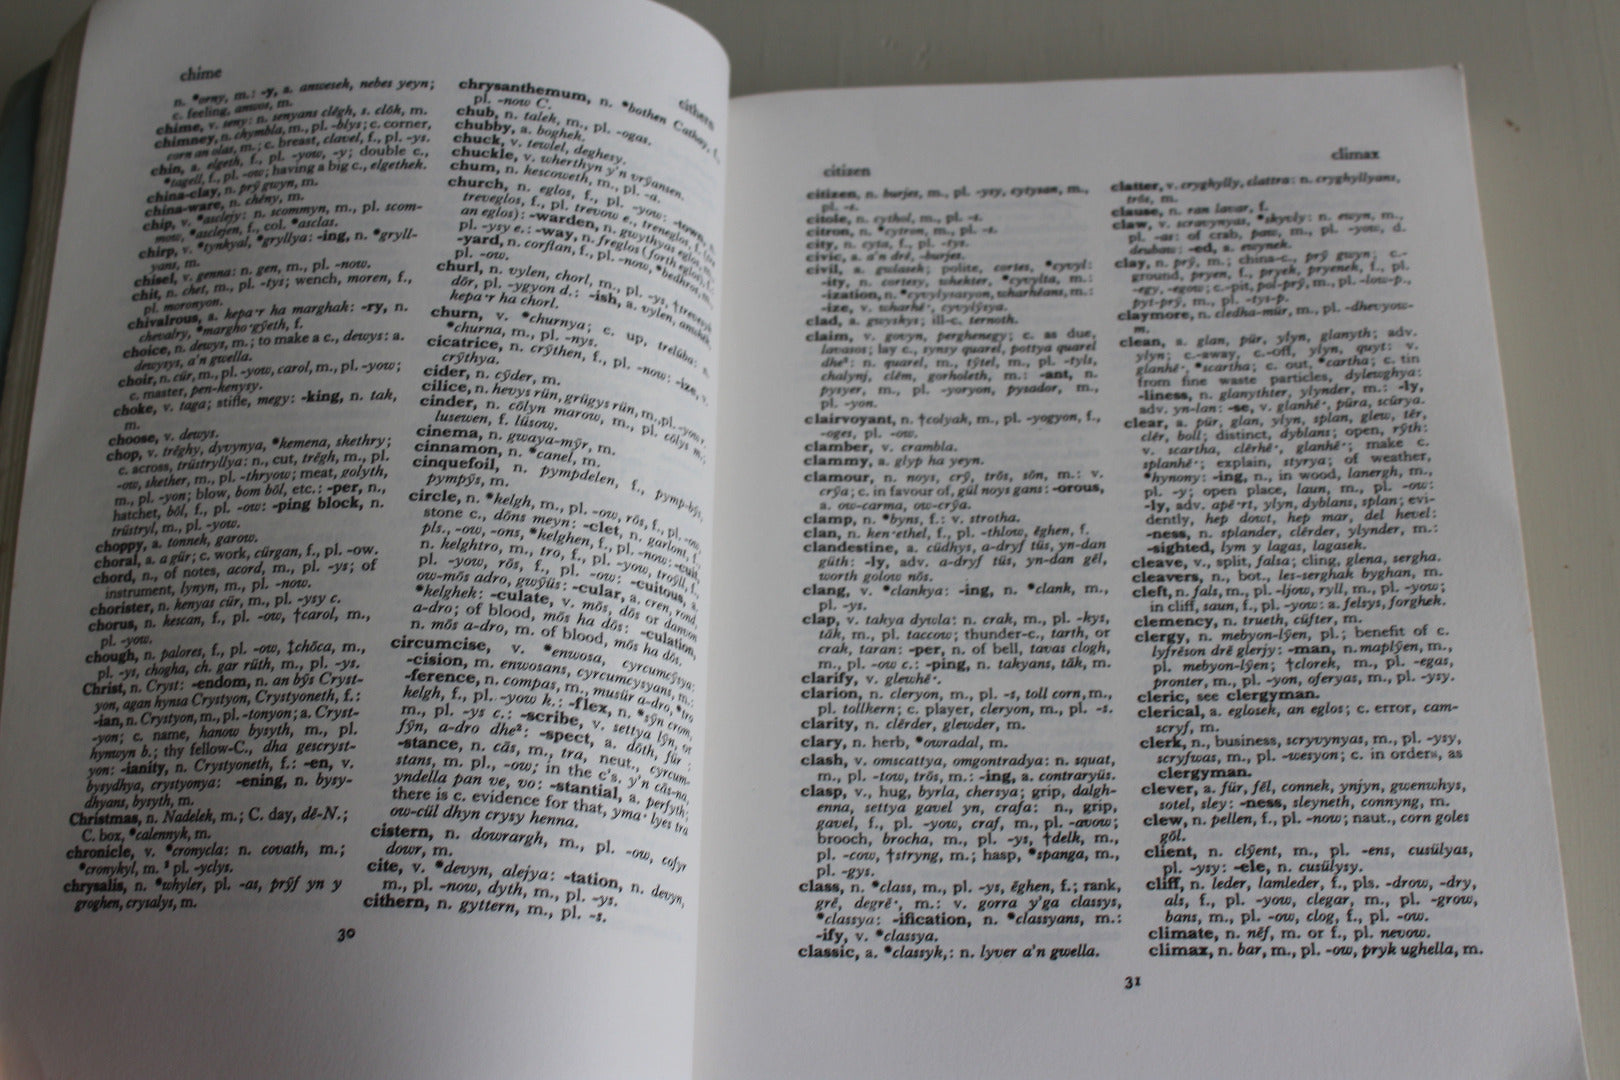 chime
n. *orny, m.: -y, a. anwesek, nebes yeyn;
c. feeling, anwos, m.
chime, v. seny: n. senyans clēgh, s. clōk, m.
chimney, n. chymbla, m., pl. -blys; c. corner,
corn an olas, m.; c. breast, clavel, f., pl. -ys.
chin, a. elgeth, f., pl. -yow, -y; double c.,
*tagell, f., pl. -ow; having a big c., elgethek.
china-clay, n. prȳ gwyn, m.
china-ware, n. chēny, m.
chip, v. *asclejy: n. scommyn, m., pl. scom-
mow, *asclejen, f., col. *asclas.
chirp, v. *tynkyal, *gryllya: -ing, n. *gryll-
yans, m.
chisel, v. genna: n. gen, m., pl. -now.
chit, n. chet, m., pl. -tys; wench, moren, f.,
pl. moronyon.
chivalrous, a. kepa·r ha marghak: -ry, n.
chevalry, *margho·gȳeth, f.
choice, n. dewys, m.; to make a c., dewys: a.
dewysys, a'n gwella.
choir, n. cūr, m., pl. -yow, carol, m., pl. -yow;
c. master, pen-kenysy.
choke, v. taga; stifle, megy: -king, n. tak,
m.
choose, v. dewys.
chop, v. trēghy, dyvynya, *kemena, skethry;
c. across, trūstryllya: n., cut, trēgh, m., pl.
-ow, skether, m., pl. -thryow; meat, golyth,
m., pl. -yon; blow, bom bōl, etc.: -per, n.,
hatchet, bōl, f., pl. -ow: -ping block, n.
trūstryl, m., pl. -yow.
choppy, a. tonnek, garow.
choral, a. a gūr; c. work, cūrgan, f., pl. -ow.
chord, n., of notes, acord, m., pl. -ys; of
instrument, lynyn, m., pl. -now.
chorister, n. kenyas cūr, m., pl. -ysy c.
chorus, n. kescan, f., pl. -ow, †carol, m.,
pl. -yow.
chough, n. palores, f., pl. -ow, ‡chōca, m.,
pl. -ys, chogha, ch. gar rūth, m., pl. -ys.
Christ, n. Cryst: -endom, n. an bȳs Cryst-
yon, agan hynsa Crystyon, Crystyoneth, f.:
-ian, n. Crystyon, m., pl. -tonyon; a. Cryst-
-yon; c. name, hanow bysyth, m., pl.
hynwyn b.; thy fellow-C., dha gescryst-
yon: -ianity, n. Crystyoneth, f.: -en, v.
bysydhya, crystyonya: -ening, n. bysy-
dhyans, bysyth, m.
Christmas, n. Nadelek, m.; C. day, dē-N.;
C. box, *calennyk, m.
chronicle, v. *cronycla: n. covath, m.;
*cronykyl, m. pl. -yclys.
chrysalis, n. *whyler, pl. -as, prȳf yn y
groghen, crysalys, m.
30
cithern
chrysanthemum, n. *bothen Cathay, f.,
pl. -now C.
chub, n. talek, m., pl. -ogas.
chubby, a. boghek.
chuck, v. tewlel, deghesy.
chuckle, v. wherthyn y'n vrȳansen.
chum, n. kescoweth, m., pl. -a.
church, n. eglos, f., pl. -yow: -town, n.
treveglos, f., pl. trevow e., treneglos, f.
an eglos): -warden, n. gwythyas eglos, m.,
pl. -ysy e.: -way, n. freglos (forth eglos), f.:
-yard, n. corflan, f., pl. -now, *bedhros, m.,
pl. -ow.
churl, n. vylen, chorl, m., pl. -ys,
dōr, pl. -ygyon d.: -ish, a. vylen,
kepa·r ha chorl.
churn, v. *churnya; c. up, trelūba: n.
*churna, m., pl. -nys.
cicatrice, n. crȳthen, f., pl. -now: -ize, v.
crȳthya.
cider, n. cȳder, m.
cilice, n. hevys rūn, grūgys rūn, m., pl. -yow r.
cinder, n. cōlyn marow, m., pl. cōlys m.;
lusewen, f. lūsow.
cinema, n. gwaya-mȳr, m.
cinnamon, n. *canel, m.
cinquefoil, n. pympdelen, f., pymp-bȳs,
pympȳs, m.
circle, n. *kelgh, m., pl. -ow, rōs, f., pl. -ow,
stone c., dōns meyn: -clet, n. garlont, f.,
pls., -ow, -ons, *kelghen, f., pl. -now: -cuit,
n. kelghtro, m., tro, f., pl. -yow, troyll, f.,
pl. -yow, rōs, f., pl. -ow: -cuitous, a.
ow-mōs adro, gwȳūs: -cular, a. cren, rond,
*kelghek: -culate, v. mōs, dōs or danvon
a-dro; of blood, mōs ha dōs: -culation,
n. mōs a-dro, m. of blood, mōs ha dōs.
circumcise, v. *enwosa, cyrcumcȳsya:
-cision, m. enwosans, cyrcumcysyans, m.:
-ference, n. compas, m., musūr a-dro, *tro
kelgh, f., pl. -yow k.: -flex, n. *sȳn crom,
m., pl. -ys c.: -scribe, v. settya lȳn, or
fȳn, a-dro dhe²: -spect, a. dōth, fūr:
-stance, n. cās, m., tra, neut., cyrcum-
stans, m. pl., -ow; in the c's. y'n cās-na,
yndella pan ve, vo: -stantial, a. perfyth;
there is c. evidence for that, yma· lyes tra
ow-cūl dhyn crysy henna.
cistern, n. dowrargh, m., pl. -ow, cofyr
dowr, m.
cite, v. *devyn, alejya: -tation, n. devyn,
m., pl. -now, dyth, m., pl. -ys.
cithern, n. gyttern, m., pl. -s.
citizen
citizen, n. burjes, m., pl. -ysy, cytysan, m.,
pl. -s.
citole, n. cythol, m., pl. -s.
citron, n. *cytron, m., pl. -s.
city, n. cyta, f., pl. -tys.
civic, a. a'n drē, -burjes.
civil, a. gwlasek; polite, cortes, *cyvyl:
-ity, n. cortesy, whekter, *cyvylta, m.:
-ization, n. *cyvylysacyon, wharhēans, m.:
-ize, v. wharhē·, cyvylȳsya.
clad, a. gwyskys; ill-c. ternoth.
claim, v. govyn, perghenegy; c. as due,
lavasos; lay c., synsy quarel, pottya quarel
dhe²: n. quarel, m., tȳtel, m., pl. -tyls,
chalynj, clēm, gorholeth, m.: -ant, n.
pysyer, m., pl. -yoryon, pysador, m.,
pl. -yon.
clairvoyant, n. †colyak, m., pl. -yogyon, f.,
-oges, pl. -ow.
clamber, v. crambla.
clammy, a. glyp ha yeyn.
clamour, n. noys, crȳ, trōs, sōn, m.: v.
crȳa; c. in favour of, gūl noys gans: -orous,
a. ow-carma, ow-crȳa.
clamp, n. *byns, f.: v. strotha.
clan, n. ken·ethel, f., pl. -thlow, ēghen, f.
clandestine, a. cūdhys, a-dryf tūs, yn-dan
gūth: -ly, adv. a-dryf tūs, yn-dan gēl,
worth golow nōs.
clang, v. *clankya: -ing, n. *clank, m.,
pl. -ys.
clap, v. takya dywla: n. crak, m., pl. -kys,
tāk, m., pl. taccow; thunder-c., tarth, or
crak, taran: -per, n. of bell, tavas clogh,
m., pl. -ow c.: -ping, n. takyans, tāk, m.
clarify, v. glewhē·.
clarion, n. cleryon, m., pl. -s, toll corn, m.,
pl. tollkern; c. player, cleryon, m., pl. -s.
clarity, n. clērder, glewder, m.
clary, n. herb, *owradal, m.
clash, v. omscattya, omgontradya: n. squat,
m., pl. -tow, trōs, m.: -ing, a. contraryūs.
clasp, v., hug, byrla, chersya; grip, dalgh-
enna, settya gavel yn, crafa: n., grip,
gavel, f., pl. -yow, craf, m., pl. -avow;
brooch, brocha, m., pl. -ys, †delk, m.,
pl. -cow, †stryng, m.; hasp, *spanga, m.,
pl. -gys.
class, n. *class, m., pl. -ys, ēghen, f.; rank,
grē, degrē·, m.: v. gorra y'ga classys,
*classya: -ification, n. *classyans, m.:
-ify, v. *classya.
classic, a. *classyk,: n. lyver a'n gwella.
climax
clatter, v. cryghylly, clattra: n. cryghyllyans,
trōs, m.
clause, n. ran lavar, f.
claw, v. scravynyas, *skyvly: n. ewyn, m.,
pl. -as: of crab, paw, m., pl. -yow, d.
dewbaw: -ed, a. ewynek.
clay, n. prȳ, m.; china-c., prȳ gwyn; c.-
ground, pryen, f., pryek, pryenek, f., pl.
-egy, -egow; c.-pit, pol-prȳ, m., pl. -low-p.,
pyt-prȳ, m., pl. -tys-p.
claymore, n. cledha-mūr, m., pl. -dhevyow-
m.
clean, a. glan, pūr, ylyn, glanyth; adv.
ylyn; c.-away, c.-off, ylyn, quyt: v.
glanhē·, *scartha; c. out, *cartha; c. tin
from fine waste particles, dylewghya:
-liness, n. glanythter, ylynder, m.: -ly,
adv. yn-lan: -se, v. glanhē·, pūra, scūrya.
clear, a. pūr, glan, ylyn, splan, glew, tēr,
clēr, boll; distinct, dyblans; open, rȳth:
v. scartha, clērhē·, glanhē·; make c.
splanhē·; explain, styrya; of weather,
*hynony: -ing, n., in wood, lanergh, m.,
pl. -y; open place, laun, m., pl. -ow:
-ly, adv. apē·rt, ylyn, dyblans, splan; evi-
dently, hep dowt, hep mar, del hevel:
-ness, n. splander, clērder, ylynder, m.:
-sighted, lym y lagas, lagasek.
cleave, v., split, falsa; cling, glena, sergha.
cleavers, n., bot., les-serghak byghan, m.
cleft, n. fals, m., pl. -ljow, ryll, m., pl. -yow;
in cliff, saun, f., pl. -yow: a. felsys, forghek.
clemency, n. trueth, cūfter, m.
clergy, n. mebyon-lȳen, pl.; benefit of c.
lyfrēson drē glerjy: -man, n. maplȳen, m.,
pl. mebyon-lȳen; †clorek, m., pl. -egas,
pronter, m., pl. -yon, oferyas, m., pl. -ysy.
cleric, see clergyman.
clerical, a. eglosek, an eglos; c. error, cam-
scryf, m.
clerk, n., business, scryvynyas, m., pl. -ysy,
scryfwas, m., pl. -wesyon; c. in orders, as
clergyman.
clever, a. fūr, fēl, connek, ynjyn, gwenwhys,
sotel, sley: -ness, sleyneth, connyng, m.
clew, n. pellen, f., pl. -now; naut., corn goles
gōl.
client, n. clȳent, m., pl. -ens, cusūlyas,
pl. -ysy: -ele, n. cusūlysy.
cliff, n. leder, lamleder, f., pls. -drow, -dry,
als, f., pl. -yow, clegar, m., pl. -grow,
bans, m., pl. -ow, clog, f., pl. -ow.
climate, n. nēf, m. or f., pl. nevow.
climax, n. bar, m., pl. -ow, pryk ughella, m.
31